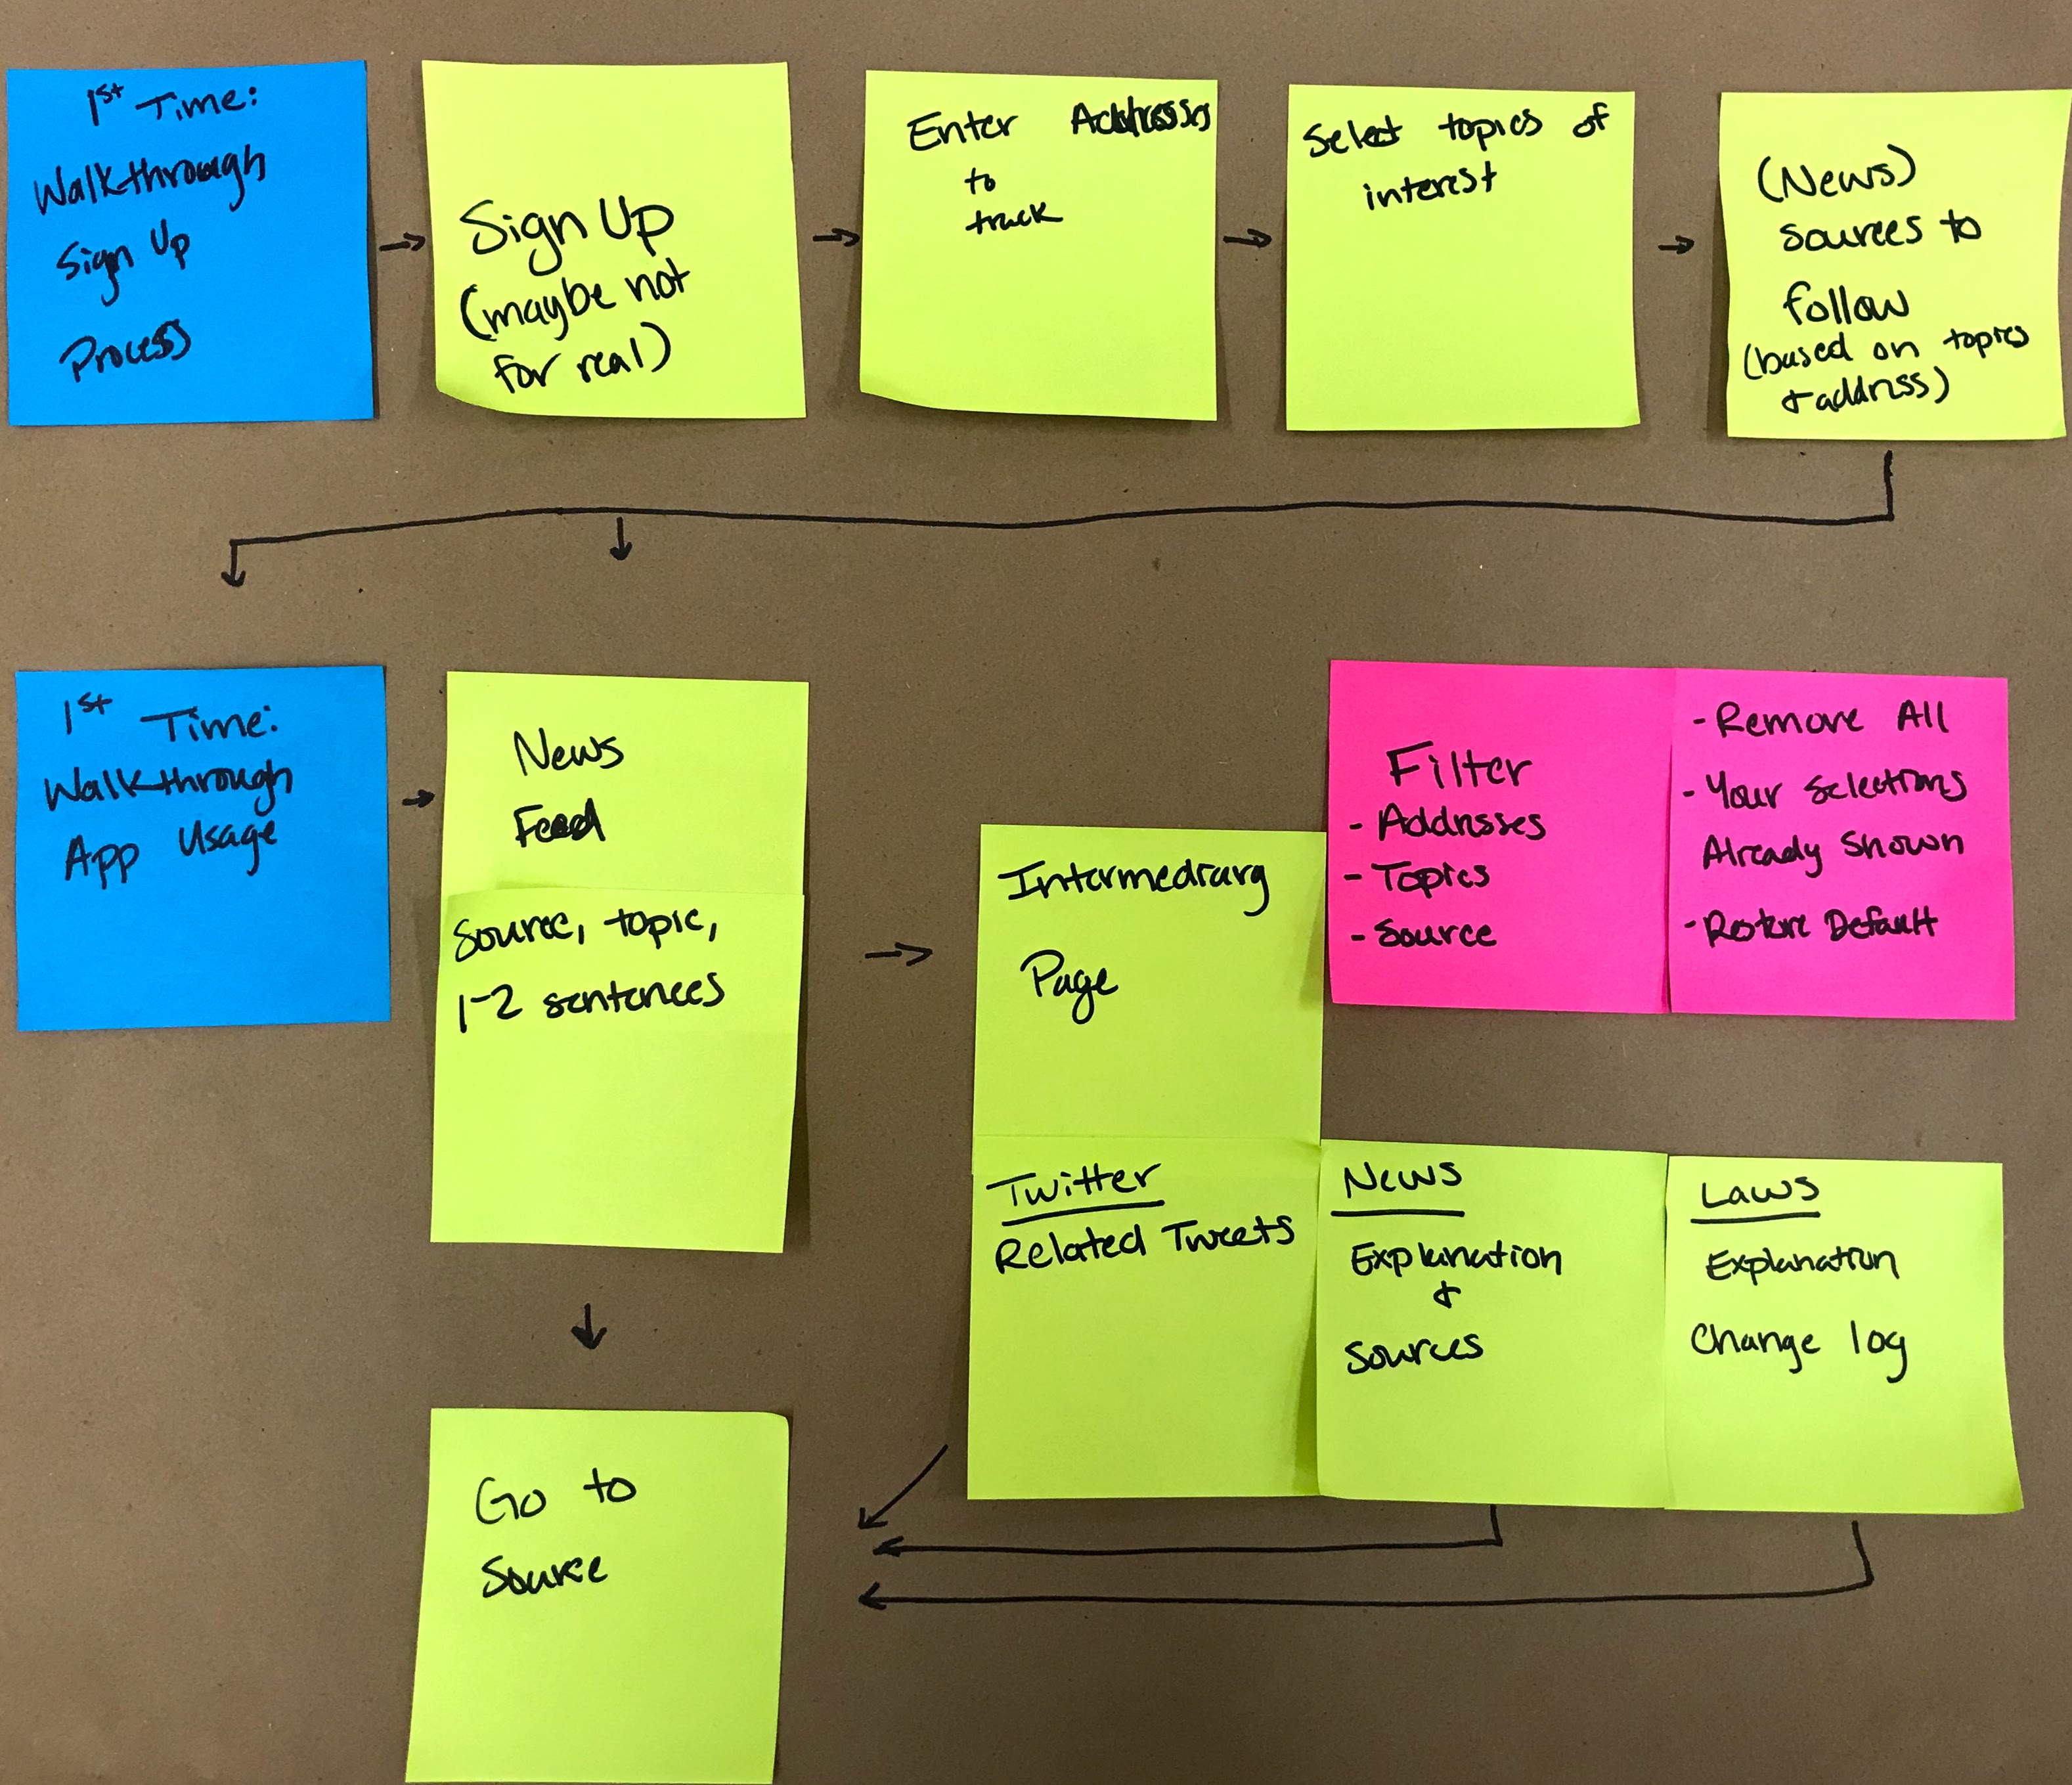 1st Time:
Walkthrough
Sign Up
Process
Sign Up
(maybe not
for real)
Enter Addresses
to
track
Select topics of
interest
(News)
sources to
follow
(based on topics
& address)
1st Time:
Walkthrough
App Usage
News
Feed
Source, topic,
1-2 sentences
Intermediary
Page
Filter
- Addresses
- Topics
- Source
- Remove All
- Your Selections
Already Shown
- Restore Default
Twitter
Related Tweets
News
Explanation
&
Sources
Laws
Explanation
Change log
Go to
Source